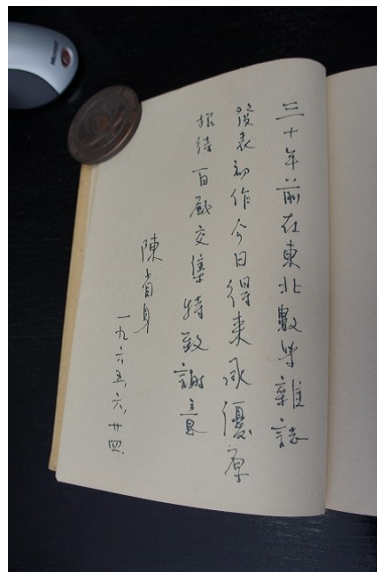 三十年前在東北數学雜誌
發表初作今日得來承優厚
招待百感交集特致謝意
陳省身
一九六五,六,廿四.